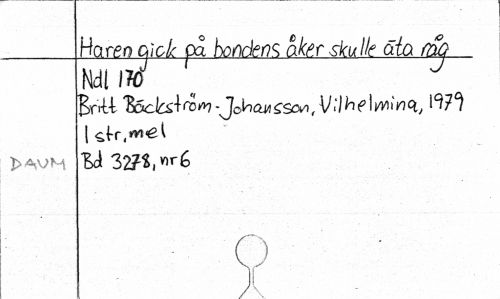 Haren gick på bondens åker skulle äta råg
Ndl 170
Britt Bäckström-Johansson, Vilhelmina, 1979
1 str, mel
DAUM Bd 3278, nr 6